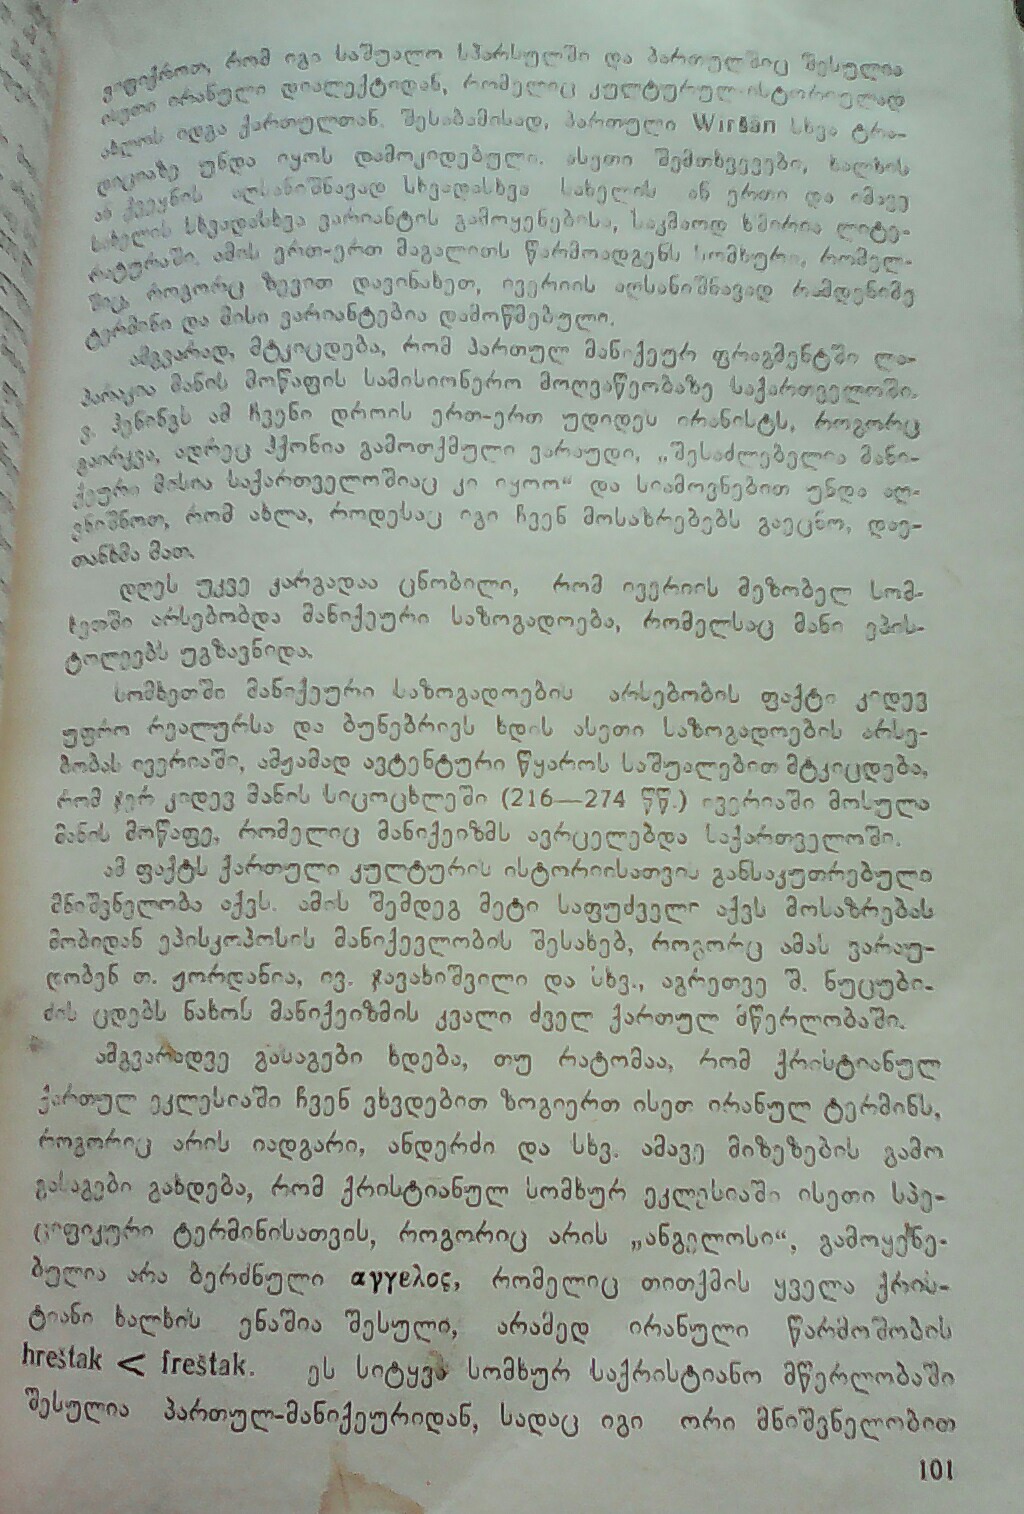 ვიფიქროთ, რომ იგი საშუალო სპარსულში და პართულშიც შესულია
ისეთი ირანული დიალექტიდან, რომელიც კულტურულ-ისტორიულად
ახლოს იდგა ქართულთან. შესაბამისად, პართული Wiršān სხვა ტრა-
დიციაზე უნდა იყოს დამოკიდებული. ასეთი შემთხვევები, ხალხის
ან ქვეყნის აღსანიშნავად სხვადასხვა სახელის ან ერთი და იმავე
სახელის სხვადასხვა ვარიანტის გამოყენებისა, საკმაოდ ხშირია ლიტე-
რატურაში. ამის ერთ-ერთ მაგალითს წარმოადგენს სომხური, რომელ-
შიც როგორც ზევით დავინახეთ, ივერიის აღსანიშნავად რამდენიმე
ტერმინი და მისი ვარიანტებია დამოწმებული.
ამგვარად, მტკიცდება, რომ პართულ მანიქეურ ფრაგმენტში ლა-
პარაკია მანის მოწაფის სამისიონერო მოღვაწეობაზე საქართველოში.
ვ. ჰენინგს ამ ჩვენი დროის ერთ-ერთ უდიდეს ირანისტს, როგორც
გაირკვა, ადრეც ჰქონია გამოთქმული ვარაუდი, „შესაძლებელია მანი-
ქეური მისია საქართველოშიაც კი იყოო“ და სიამოვნებით უნდა აღ-
ვნიშნოთ, რომ ახლა, როდესაც იგი ჩვენ მოსაზრებებს გაეცნო, დაე-
თანხმა მათ.
დღეს უკვე კარგადაა ცნობილი, რომ ივერიის მეზობელ სომ-
ხეთში არსებობდა მანიქეური საზოგადოება, რომელსაც მანი ეპის-
ტოლეებს უგზავნიდა.
სომხეთში მანიქეური საზოგადოების არსებობის ფაქტი კიდევ
უფრო რეალურსა და ბუნებრივს ხდის ასეთი საზოგადოების არსე-
ბობას ივერიაში, ამჟამად ავტენტური წყაროს საშუალებით მტკიცდება,
რომ ჯერ კიდევ მანის სიცოცხლეში (216—274 წწ.) ივერიაში მოსულა
მანის მოწაფე, რომელიც მანიქეიზმს ავრცელებდა საქართველოში.
ამ ფაქტს ქართული კულტურის ისტორიისათვის განსაკუთრებული
მნიშვნელობა აქვს. ამის შემდეგ მეტი საფუძველი აქვს მოსაზრებას
მობიდან ეპისკოპოსის მანიქევლობის შესახებ, როგორც ამას ვარაუ-
დობენ თ. ჟორდანია, ივ. ჯავახიშვილი და სხვ., აგრეთვე შ. ნუცუბი-
ძის ცდებს ნახოს მანიქეიზმის კვალი ძველ ქართულ მწერლობაში.
ამგვარადვე გასაგები ხდება, თუ რატომაა, რომ ქრისტიანულ
ქართულ ეკლესიაში ჩვენ ვხვდებით ზოგიერთ ისეთ ირანულ ტერმინს,
როგორიც არის იადგარი, ანდერძი და სხვ. ამავე მიზეზების გამო
გასაგები გახდება, რომ ქრისტიანულ სომხურ ეკლესიაში ისეთი სპე-
ციფიკური ტერმინისათვის, როგორიც არის „ანგელოსი“, გამოყენე-
ბულია არა ბერძნული αγγελος, რომელიც თითქმის ყველა ქრის-
ტიანი ხალხის ენაშია შესული, არამედ ირანული წარმოშობის
hreštak < freštak. ეს სიტყვა სომხურ საქრისტიანო მწერლობაში
შესულია პართულ-მანიქეურიდან, სადაც იგი ორი მნიშვნელობით
101